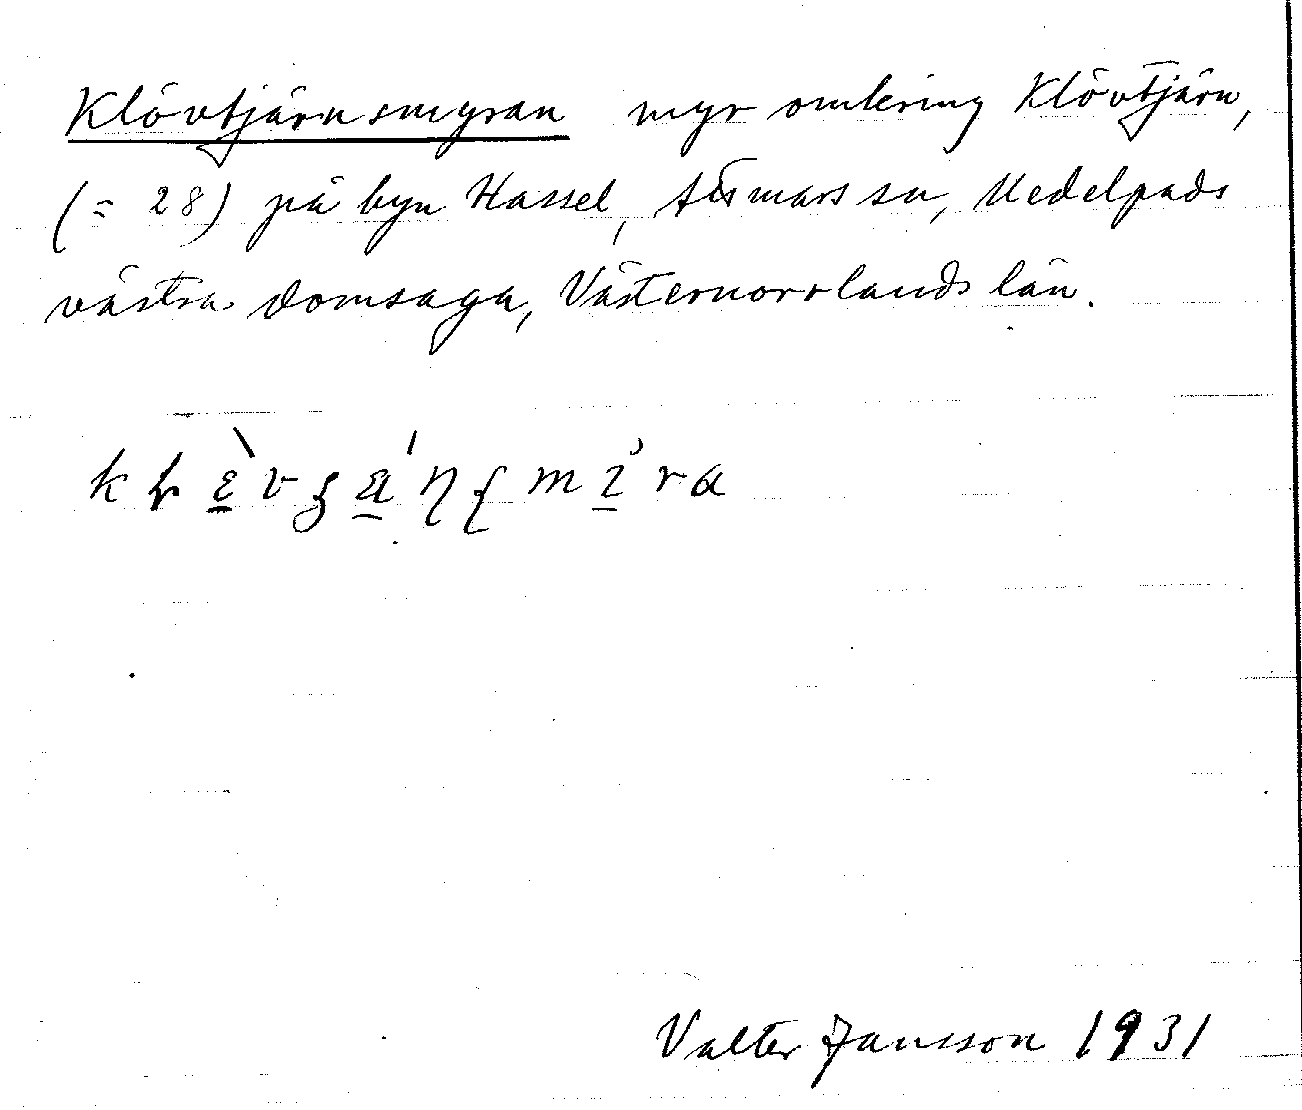 Klövtjärnsmyran myr omkring Klövtjärn,
(= 28) på byn Hassel, Attmars sn, Medelpads
västra domsaga, Västernorrlands län.
Valter Jansson 1931